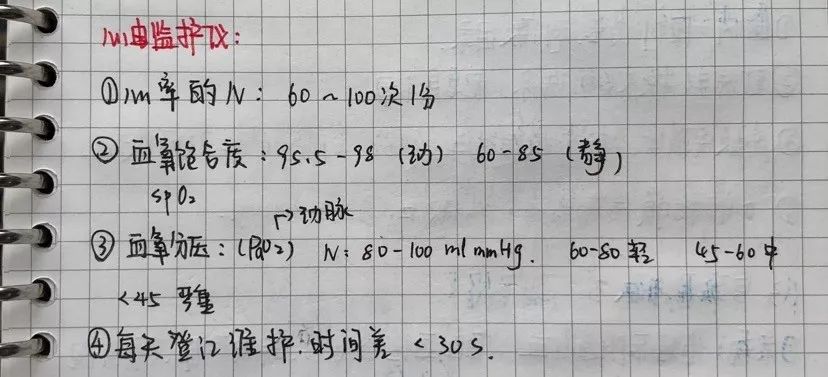 心电监护仪:
①心率的N: 60~100次/分
②血氧饱合度:95.5-98 (动) 60-85 (静)
SpO₂
→动脉
③血氧分压:(PaO2) N:80-100 ml mmHg. 60-80轻 45-60中
<45 严重
④每天登记维护.时间差<30S.